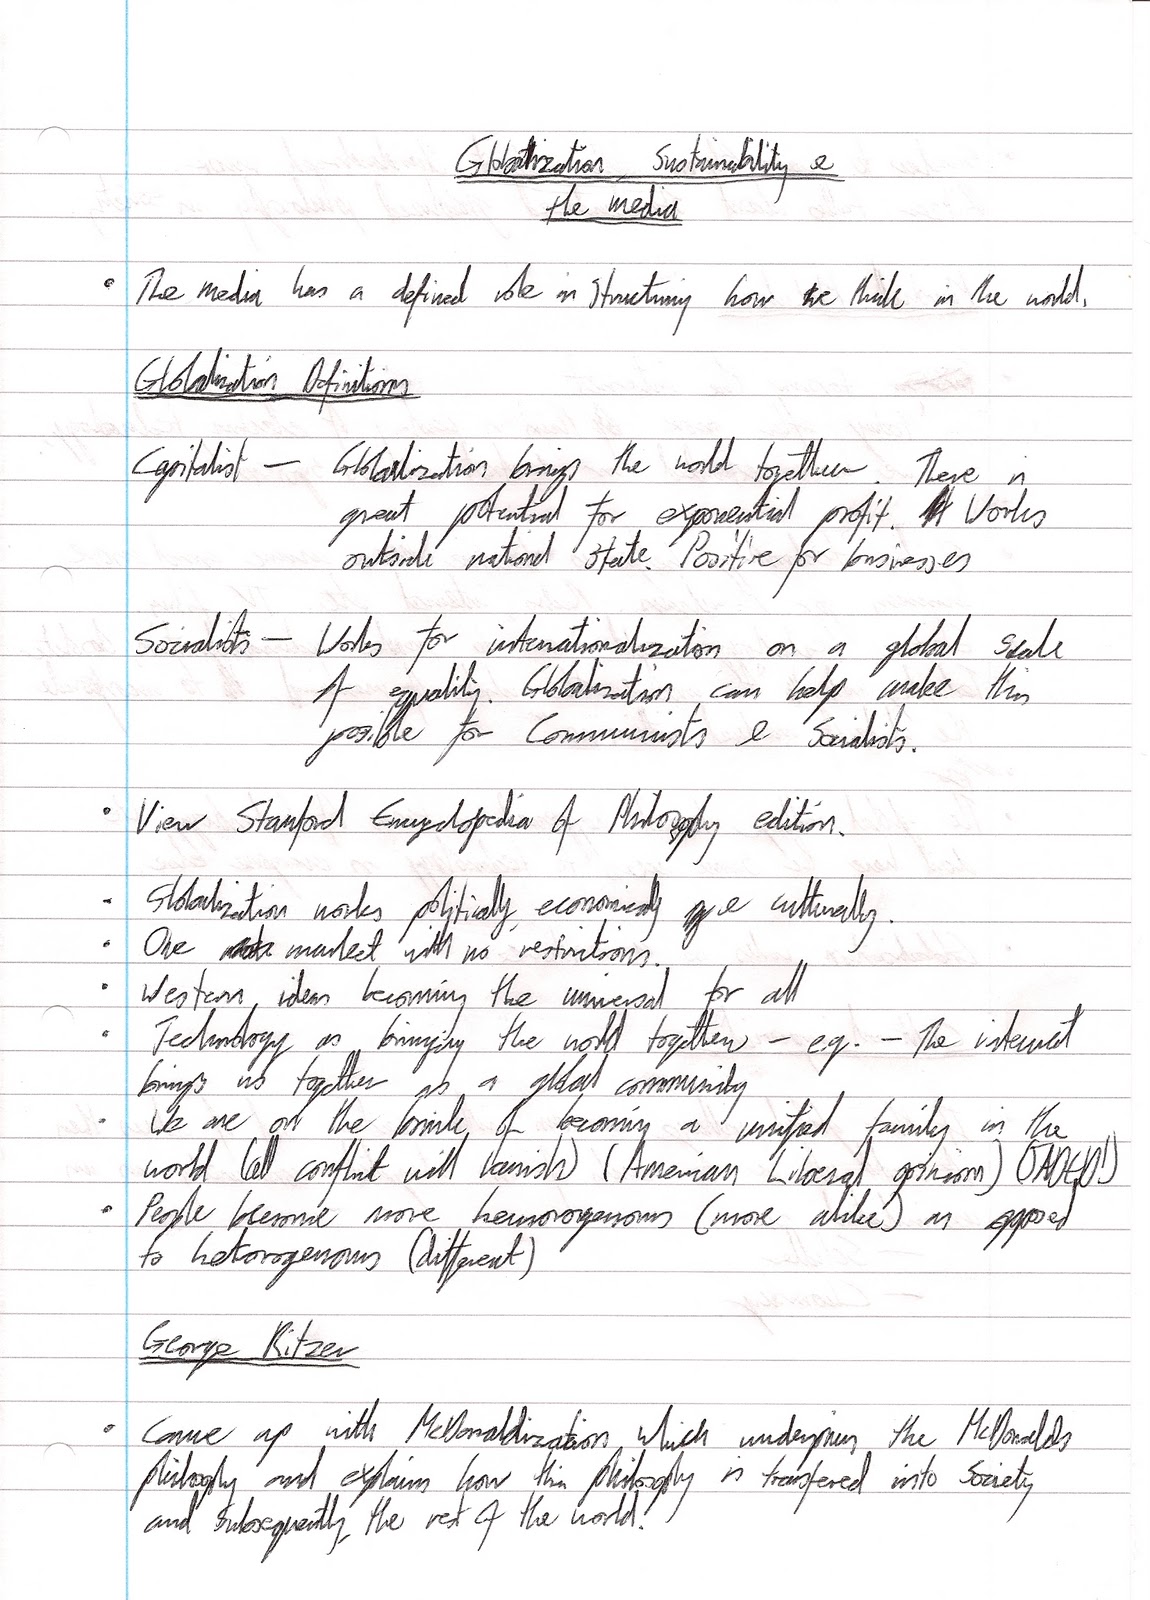 Globalization, Sustainability &
the media
• The media has a defined role in structuring how we think in the world.
Globalization Definitions
Capitalist — Globalization brings the world together. There is
great potential for exponential profit. Works
outside national state. Positive for businesses
Socialists — Works for internationalization on a global scale
of equality. Globalization can help make this
possible for Communists & Socialists.
• View Stanford Encyclopedia of Philosophy edition.
- Globalization works politically, economically & culturally.
• One market with no restrictions.
• Western ideas becoming the universal for all
• Technology as bringing the world together - e.g. - The internet
brings us together as a global community
• We are on the brink of becoming a unified family in the
world (all conflict will vanish) (American Liberal opinion)
• People become more (more alike) as opposed
to heterogenous (different)
George Ritzer
• Came up with McDonaldization which underpins the McDonalds
philosophy and explains how this philosophy is transfered into society
and subsequently, the rest of the world.